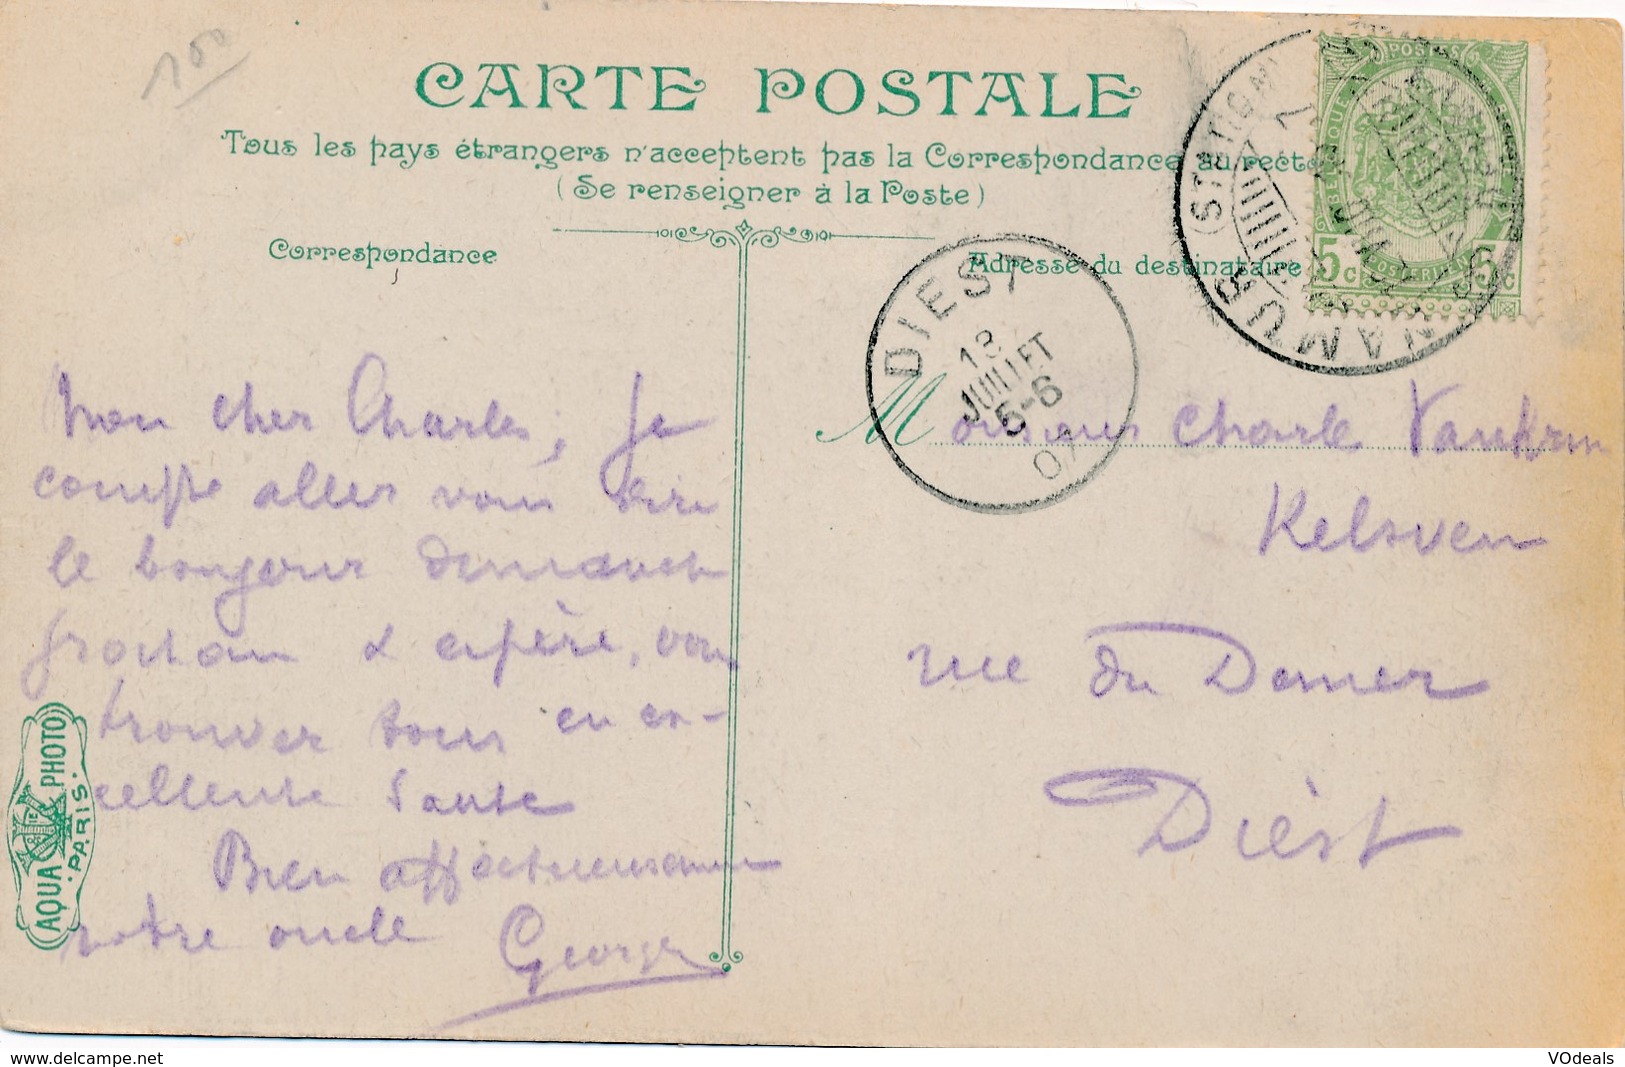 100
CARTE POSTALE
Tous les pays étrangers n'acceptent pas la Correspondance au recto
(Se renseigner à la Poste)
Correspondance
Adresse du destinataire
POSTES
BELGIQUE
5c POSTERIJEN 5c
NAMUR (STATION)
DIEST
13
JUILLET
5-6
07
Mon cher Charles, Je
compte aller vous dire
le bonjour dimanche
prochain & espère, vous
trouver tous en ex-
cellente santé
Bien affectueusement
votre oncle
Georges
Monsieur Charle
Kelsven
rue du Demer
Diest
AQUA PHOTO
PARIS
www.delcampe.net
VOdeals